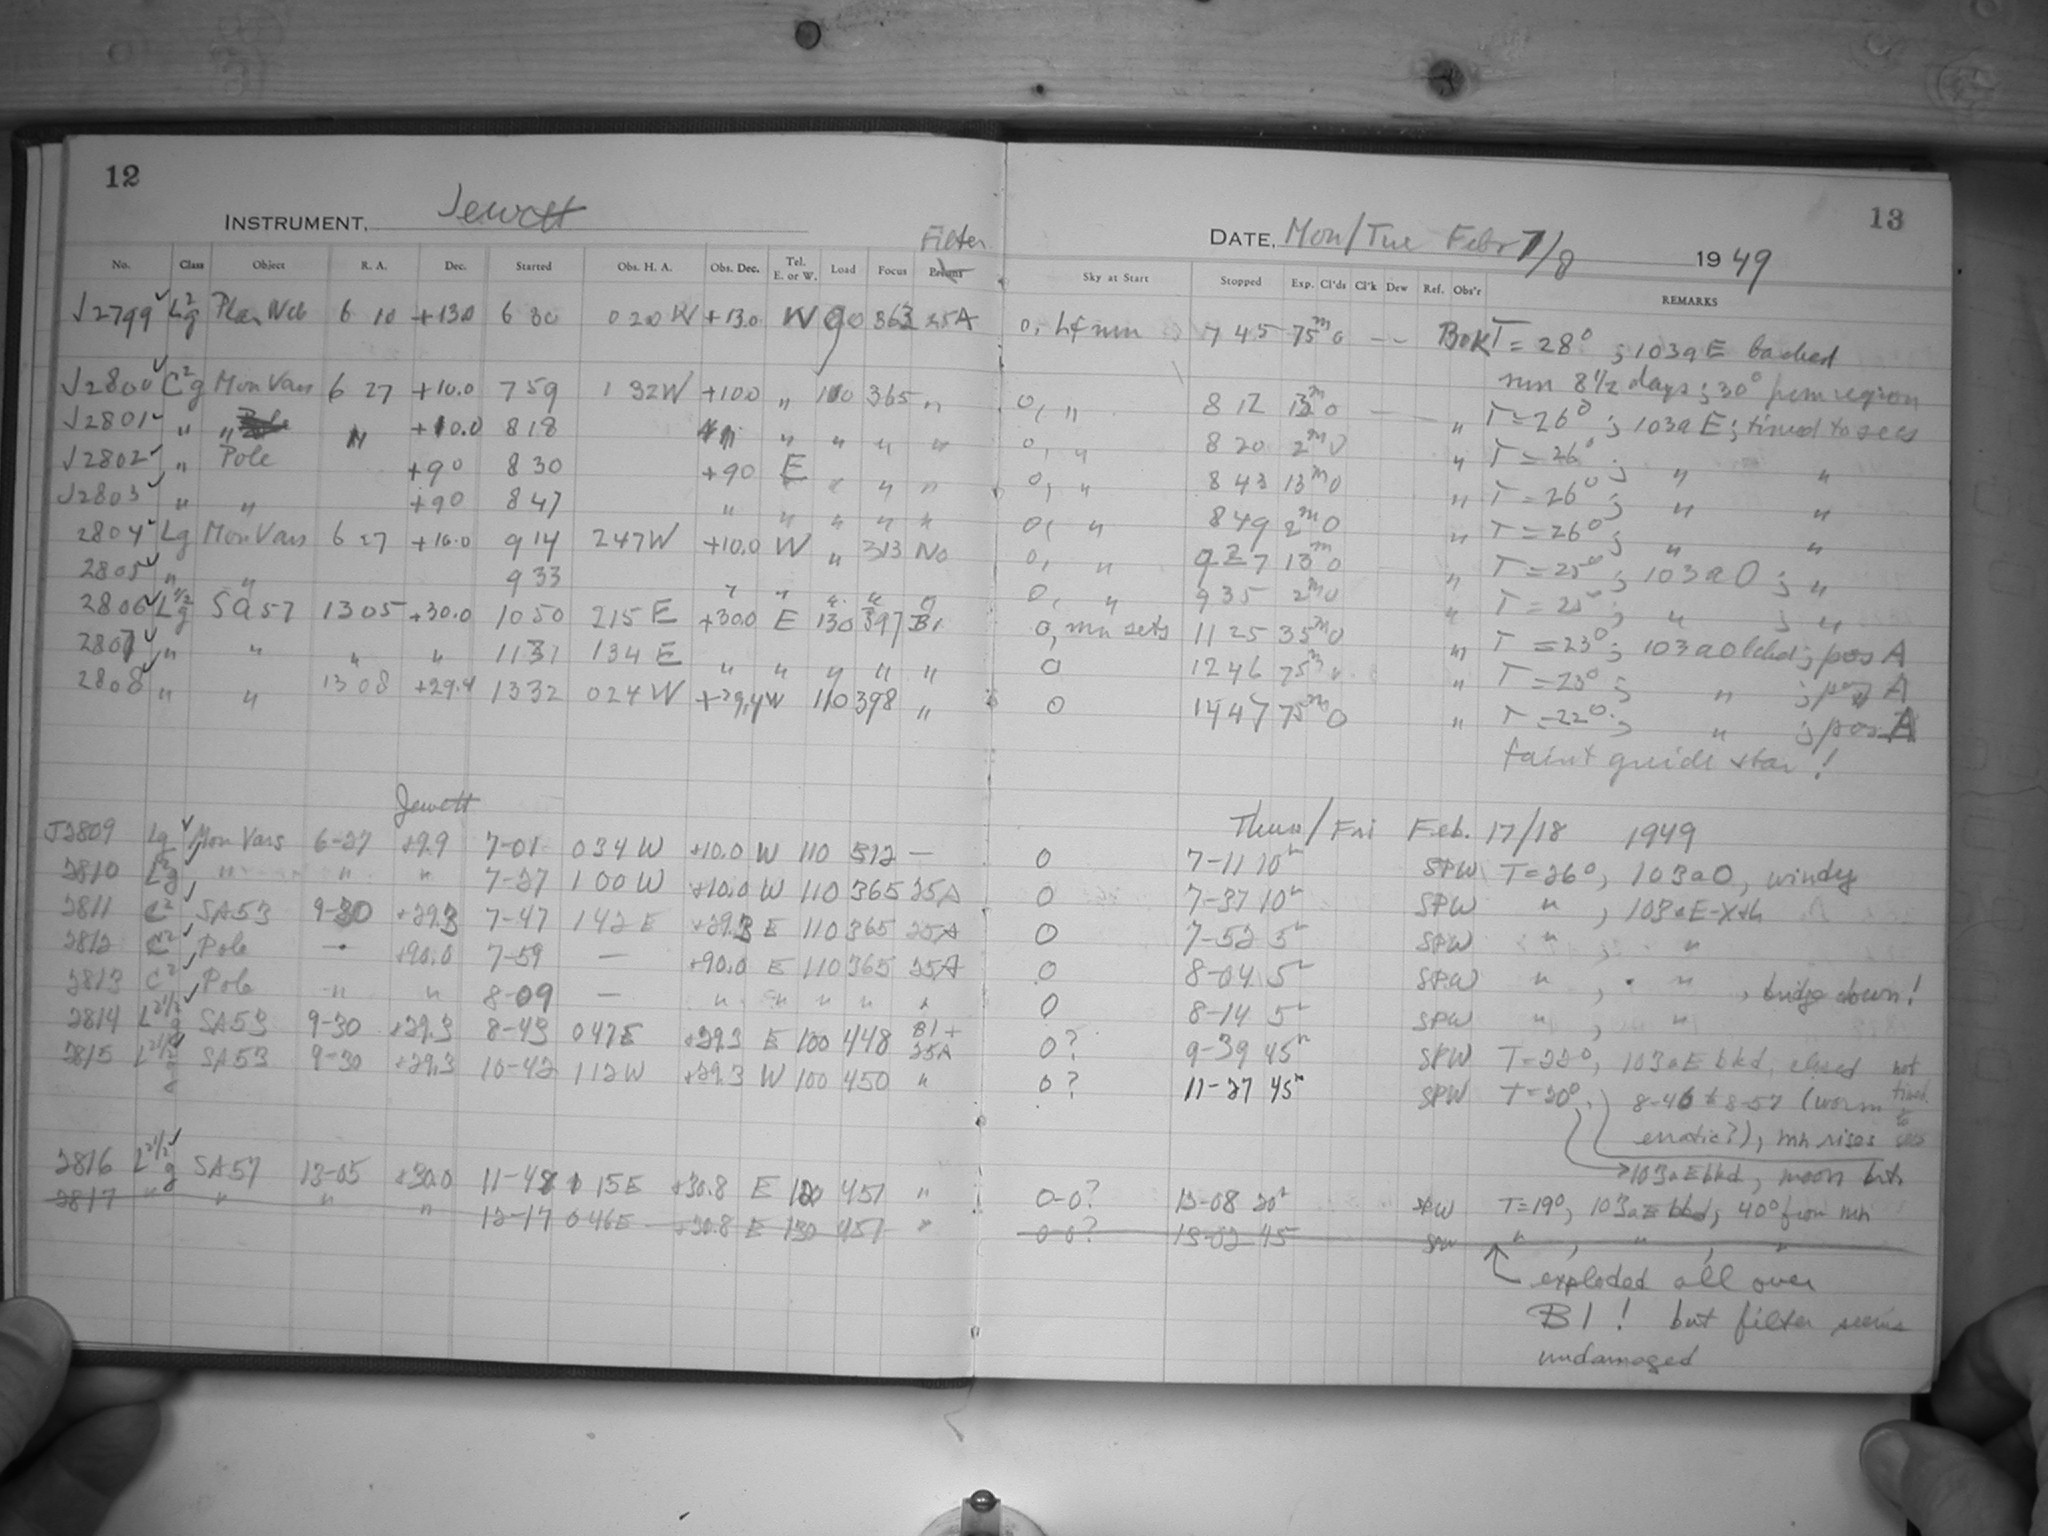 12
INSTRUMENT, Jewett
Filter
No. Class Object R. A. Dec. Started Obs. H. A. Obs. Dec. Tel. E. or W. Load Focus
J2799 L²g Plan Neb 6 10 +13.0 6 30 0 20 W +13.0 W 90 363 25A
J2800 C²g Mon Vars 6 27 +10.0 7 59 1 32W +10.0 " 110 365 "
J2801 " " " +10.0 8 18 " " " " "
J2802 " Pole +90 8 30 +90 E " " "
J2803 " " +90 8 47 " " " " "
2804 Lg Mon Vars 6 27 +10.0 9 14 2 47W +10.0 W " 313 No
2805 " " 9 33 " " " " "
2806 L½g SA 57 13 05 +30.0 10 50 2 15 E +30.0 E 130 397 B1
2807 " " " " 11 31 1 34 E " " " " "
2808 " " 13 08 +29.4 13 32 0 24 W +29.4 W 110 398 "
Jewett
J2809 Lg Mon Vars 6-27 +9.9 7-01 0 34 W +10.0 W 110 312 —
2810 L²g " " " 7-27 1 00 W +10.0 W 110 365 25A
2811 C² SA53 9-30 +29.3 7-47 1 42 E +29.3 E 110 365 25A
2812 C² Pole - +90.0 7-59 — +90.0 E 110 365 25A
2813 C² Pole " " 8-09 — " " " " "
2814 L2½g SA53 9-30 +29.3 8-43 0 47E +29.3 E 100 448 B1+ 25A
2815 L2½g SA53 9-30 +29.3 10-42 1 12W +29.3 W 100 450 "
2816 L2½g SA57 13-05 +30.0 11-48 1 15E +30.8 E 120 451 "
2817 " " " " 12-17 0 46E +30.8 E 130 451 "
13
DATE, Mon/Tue Febr 7/8 1949
Sky at Start Stopped Exp. Cl'ds Cl'k Dew Ref. Obs'r REMARKS
0, 7 45 75ᵐ 0 — BOK T = 28° ; 103a E backed
mn 8½ days ; 30° from region
0, " 8 12 13ᵐ 0 — " T = 26° ; 103a E ; timed to secs
0, " 8 20 2ᵐ 0 " T = 26° ; " "
0, " 8 43 13ᵐ 0 " T = 26° ; " "
0, " 8 49 2ᵐ 0 " T = 26° ; " "
0, " 9 27 13ᵐ 0 " T = 25° ; 103a O ; "
0, " 9 35 2ᵐ 0 " T = 25° ; " ; "
0, mn sets 11 25 35ᵐ 0 " T = 23° ; 103a O bkd ; pos A
0 12 46 75ᵐ " T = 23° ; " ; pos A
0 14 47 75ᵐ 0 " T = 22° ; " ; pos A
faint guide star !
Thur/Fri Feb. 17/18 1949
0 7-11 10ᵐ SPW T=26°, 103aO, windy
0 7-37 10ᵐ SPW " , 103aE-Xth
0 7-52 5ᵐ SPW " , "
0 8-04 5ᵐ SPW " , " , bridge down!
0 8-14 5ᵐ SPW " , "
0? 9-39 45ᵐ SPW T=22°, 103aE bkd, closed not timed to secs
0? 11-27 45ᵐ SPW T=20°, 8-46 to 8-57 (worm
erratic?), mn rises
103aE bkd, moon
0-0? 12-08 20ᵐ SPW T=19°, 103aE bkd, 40° from mn
0-0? 13-02 45 SPW " , " , "
exploded all over
B1! but filter seems
undamaged